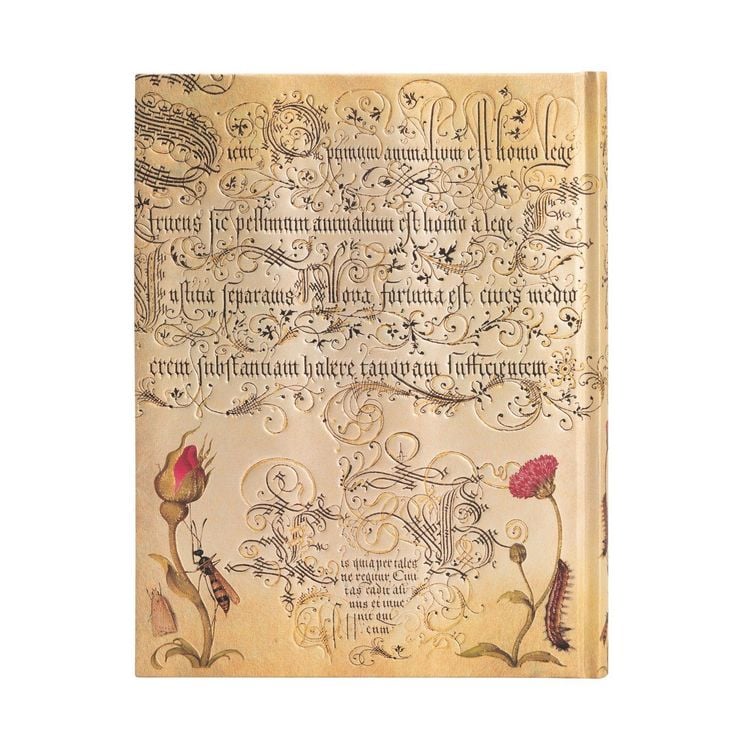 Sicut Optimum animalium est homo lege
fruens sic pessimum animalium est homo a lege Et
Iustitia separatus Nova fortuna est cives medio
crem substantiam habere tanquam sufficientem
Eis quia per tales
ne regitur, Ciui
tas cadit asi
nus et inue
nit qui
eum